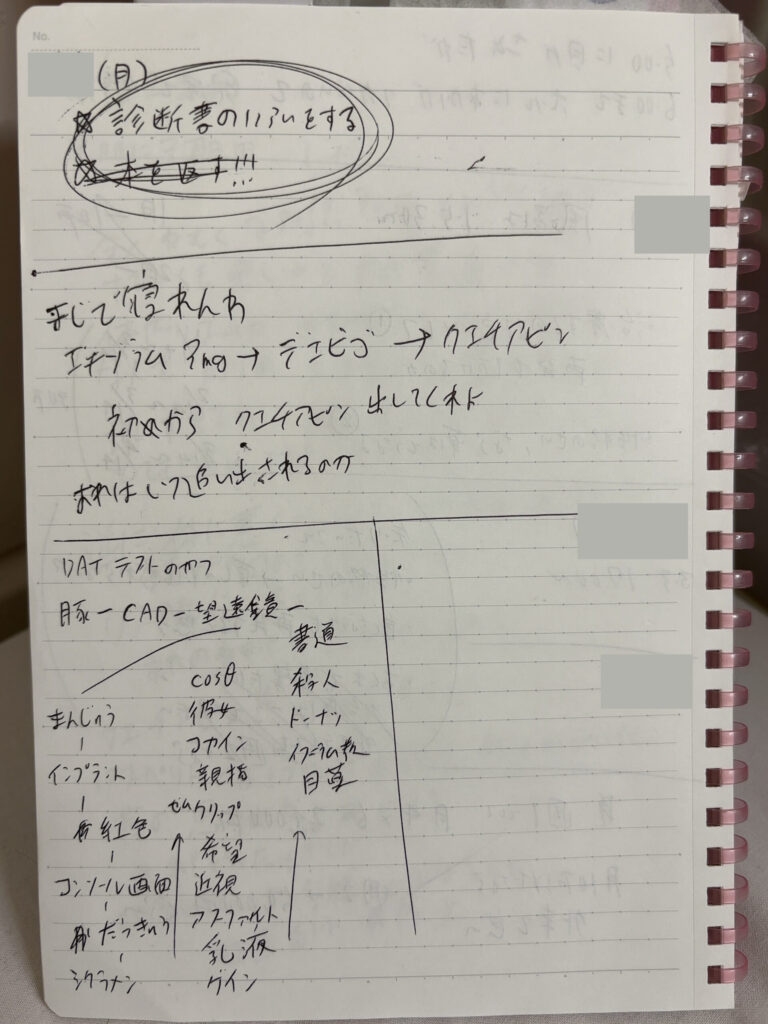 No.
(月)
☆ 診断書のいらいをする
☆ 本を返す!!!
まじで寝れんわ
エチゾラム 2mg → デエビゴ → クエチアピン
初めから クエチアピン 出してくれよ
おれはいつ追い出されるのか
DATテストのやつ
豚ー CAD ー 望遠鏡ー
まんじゅう
インプラント
紅色
コンソール画面
だっきゅう
シクラメン
cosθ
彼女
コカイン
親指
ゼムクリップ
希望
近視
アスファルト
乳液
ゲイン
書道
殺人
ドーナツ
イスラム教
目薬